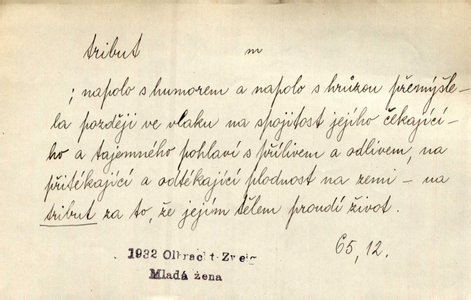 tribut m
; napolo s humorem a napolo s hrůzou přemýšle-
la později ve vlaku na spojitost jejího čekající-
ho a tajemného pohlaví s přílivem a odlivem, na
přitékající a odtékající plodnost na zemi – na
tribut za to, že jejím tělem proudí život.
65, 12.
1932 Olbracht-Zweig
Mladá žena